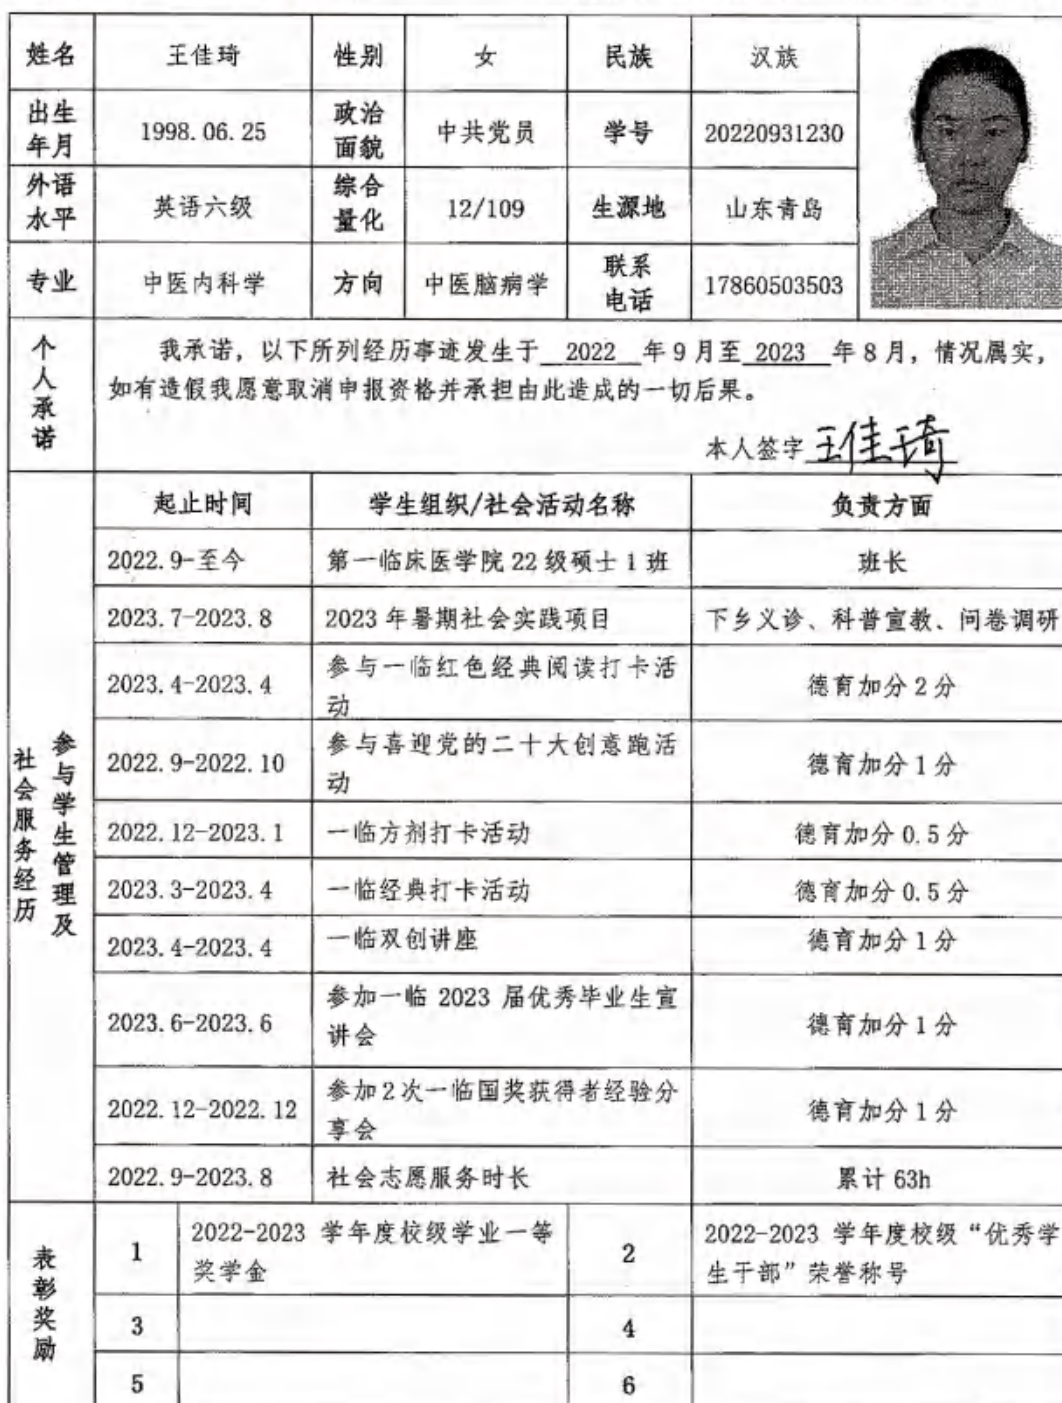 姓名 王佳琦 性别 女 民族 汉族
出生年月 1998.06.25 政治面貌 中共党员 学号 20220931230
外语水平 英语六级 综合量化 12/109 生源地 山东青岛
专业 中医内科学 方向 中医脑病学 联系电话 17860503503
个人承诺
我承诺，以下所列经历事迹发生于 2022 年9月至 2023 年8月，情况属实，
如有造假我愿意取消申报资格并承担由此造成的一切后果。
本人签字 王佳琦
参与学生管理及社会服务经历
起止时间 学生组织/社会活动名称 负责方面
2022.9-至今 第一临床医学院22级硕士1班 班长
2023.7-2023.8 2023年暑期社会实践项目 下乡义诊、科普宣教、问卷调研
2023.4-2023.4 参与一临红色经典阅读打卡活动 德育加分2分
2022.9-2022.10 参与喜迎党的二十大创意跑活动 德育加分1分
2022.12-2023.1 一临方剂打卡活动 德育加分0.5分
2023.3-2023.4 一临经典打卡活动 德育加分0.5分
2023.4-2023.4 一临双创讲座 德育加分1分
2023.6-2023.6 参加一临 2023 届优秀毕业生宣讲会 德育加分1分
2022.12-2022.12 参加2次一临国奖获得者经验分享会 德育加分1分
2022.9-2023.8 社会志愿服务时长 累计63h
表彰奖励
1 2022-2023 学年度校级学业一等奖学金 2 2022-2023 学年度校级“优秀学生干部”荣誉称号
3 4
5 6